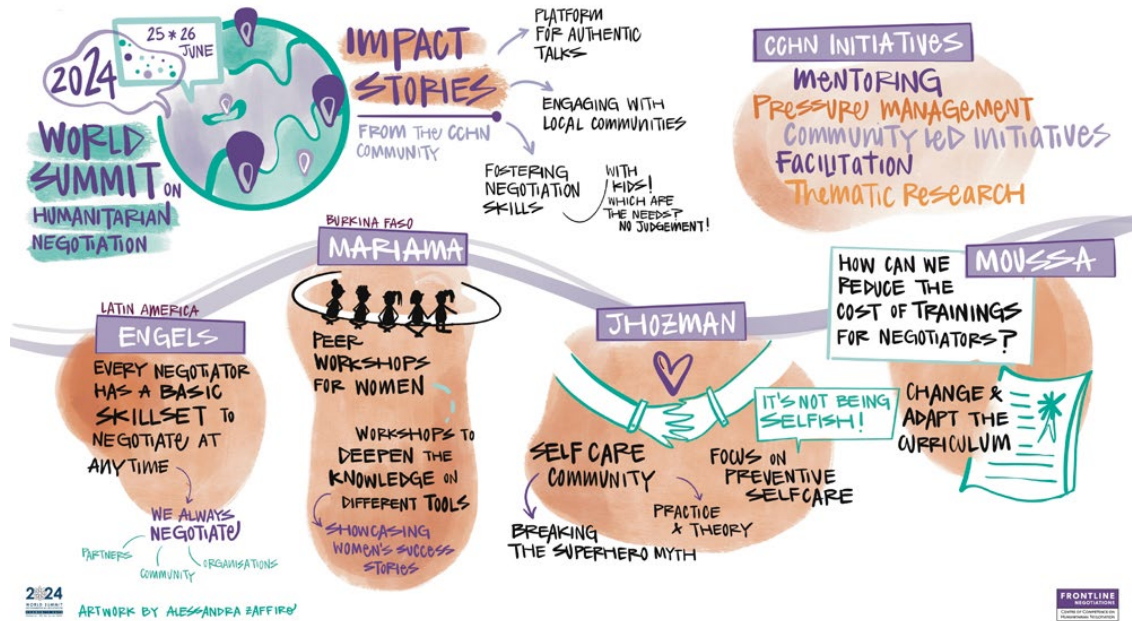 2024
25 * 26
JUNE
WORLD
SUMMIT ON
HUMANITARIAN
NEGOTIATION
IMPACT
STORIES
FROM THE CCHN
COMMUNITY
PLATFORM
FOR AUTHENTIC
TALKS
ENGAGING WITH
LOCAL COMMUNITIES
FOSTERING
NEGOTIATION
SKILLS
WITH
KIDS!
WHICH ARE
THE NEEDS?
NO JUDGEMENT!
CCHN INITIATIVES
MENTORING
PRESSURE MANAGEMENT
COMMUNITY LED INITIATIVES
FACILITATION
THEMATIC RESEARCH
LATIN AMERICA
ENGELS
EVERY NEGOTIATOR
HAS A BASIC
SKILLSET TO
NEGOTIATE AT
ANYTIME
WE ALWAYS
NEGOTIATE
PARTNERS
COMMUNITY
ORGANISATIONS
BURKINA FASO
MARIAMA
PEER
WORKSHOPS
FOR WOMEN
WORKSHOPS TO
DEEPEN THE
KNOWLEDGE ON
DIFFERENT TOOLS
SHOWCASING
WOMEN'S SUCCESS
STORIES
JHOZMAN
IT'S NOT BEING
SELFISH!
SELF CARE
COMMUNITY
BREAKING
THE SUPERHERO MYTH
PRACTICE
& THEORY
FOCUS ON
PREVENTIVE
SELFCARE
MOUSSA
HOW CAN WE
REDUCE THE
COST OF TRAININGS
FOR NEGOTIATORS?
CHANGE &
ADAPT THE
CURRICULUM
2024
WORLD SUMMIT
ARTWORK BY ALESSANDRA ZAFFIRO
FRONTLINE
NEGOTIATIONS
CENTRE OF COMPETENCE ON
HUMANITARIAN NEGOTIATION